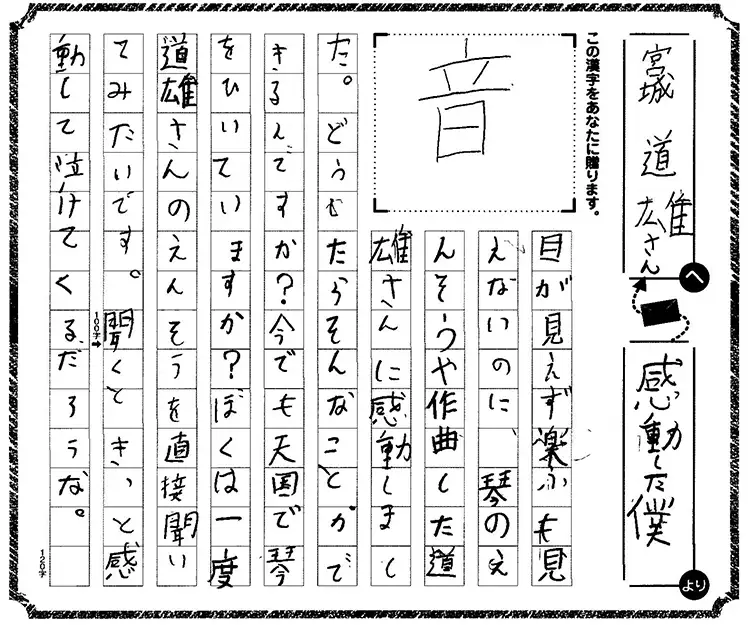 宮城 道雄さん
へ
感動した僕
より
この漢字をあなたに贈ります。
音
目が見えず楽ふも見
えないのに、琴のえ
んそうや作曲した道
雄さんに感動しまし
た。どうしたらそんなことがで
きるんですか？今でも天国で琴
をひいていますか？ぼくは一度
道雄さんのえんそうを直接聞い
てみたいです。聞くときっと感
100字
動して泣けてくるだろうな。
120字